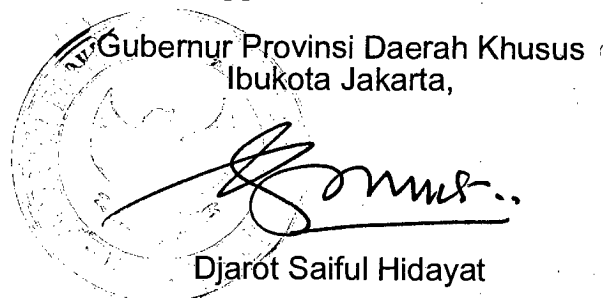 Gubernur Provinsi Daerah Khusus
Ibukota Jakarta,
Djarot Saiful Hidayat